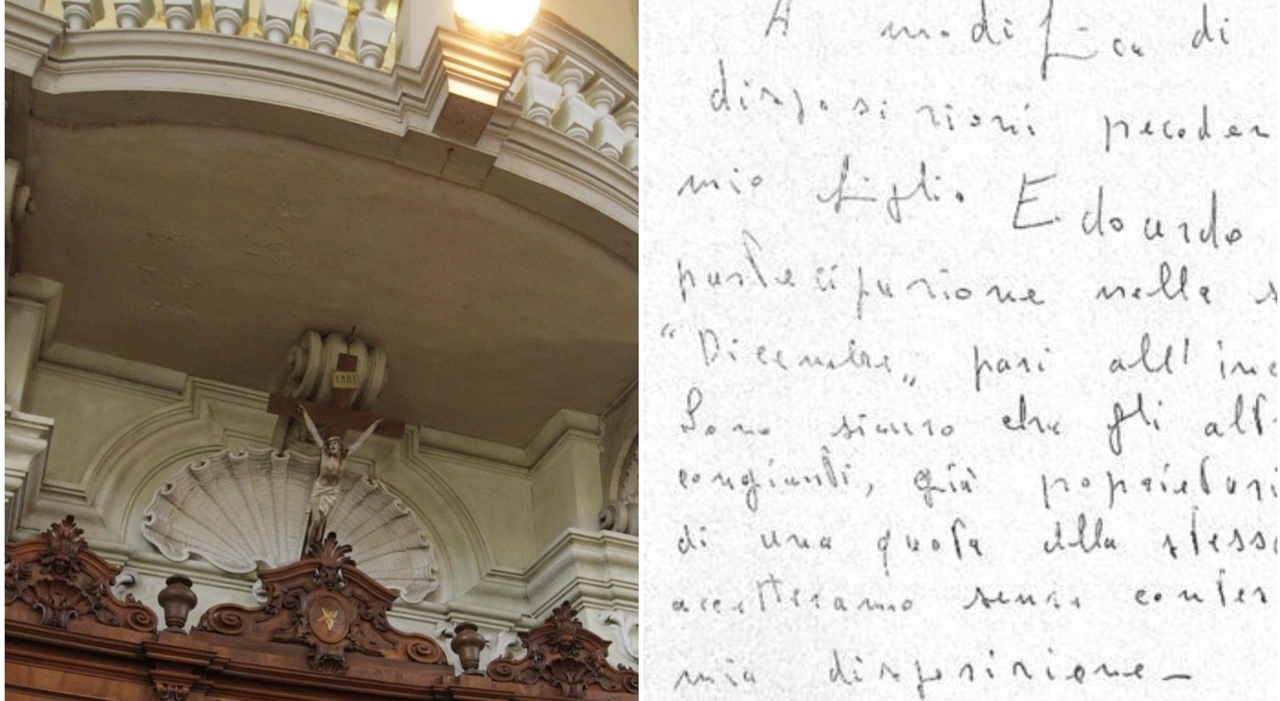 INRI
A modifica di
disposizioni preceden
mio figlio Edoardo
partecipazione nella s
"Dicembre„ pari all'in
Sono sicuro che gli alt
congiunti, già proprietari
di una quota della stessa
accetteranno senza contes
mia disposizione-